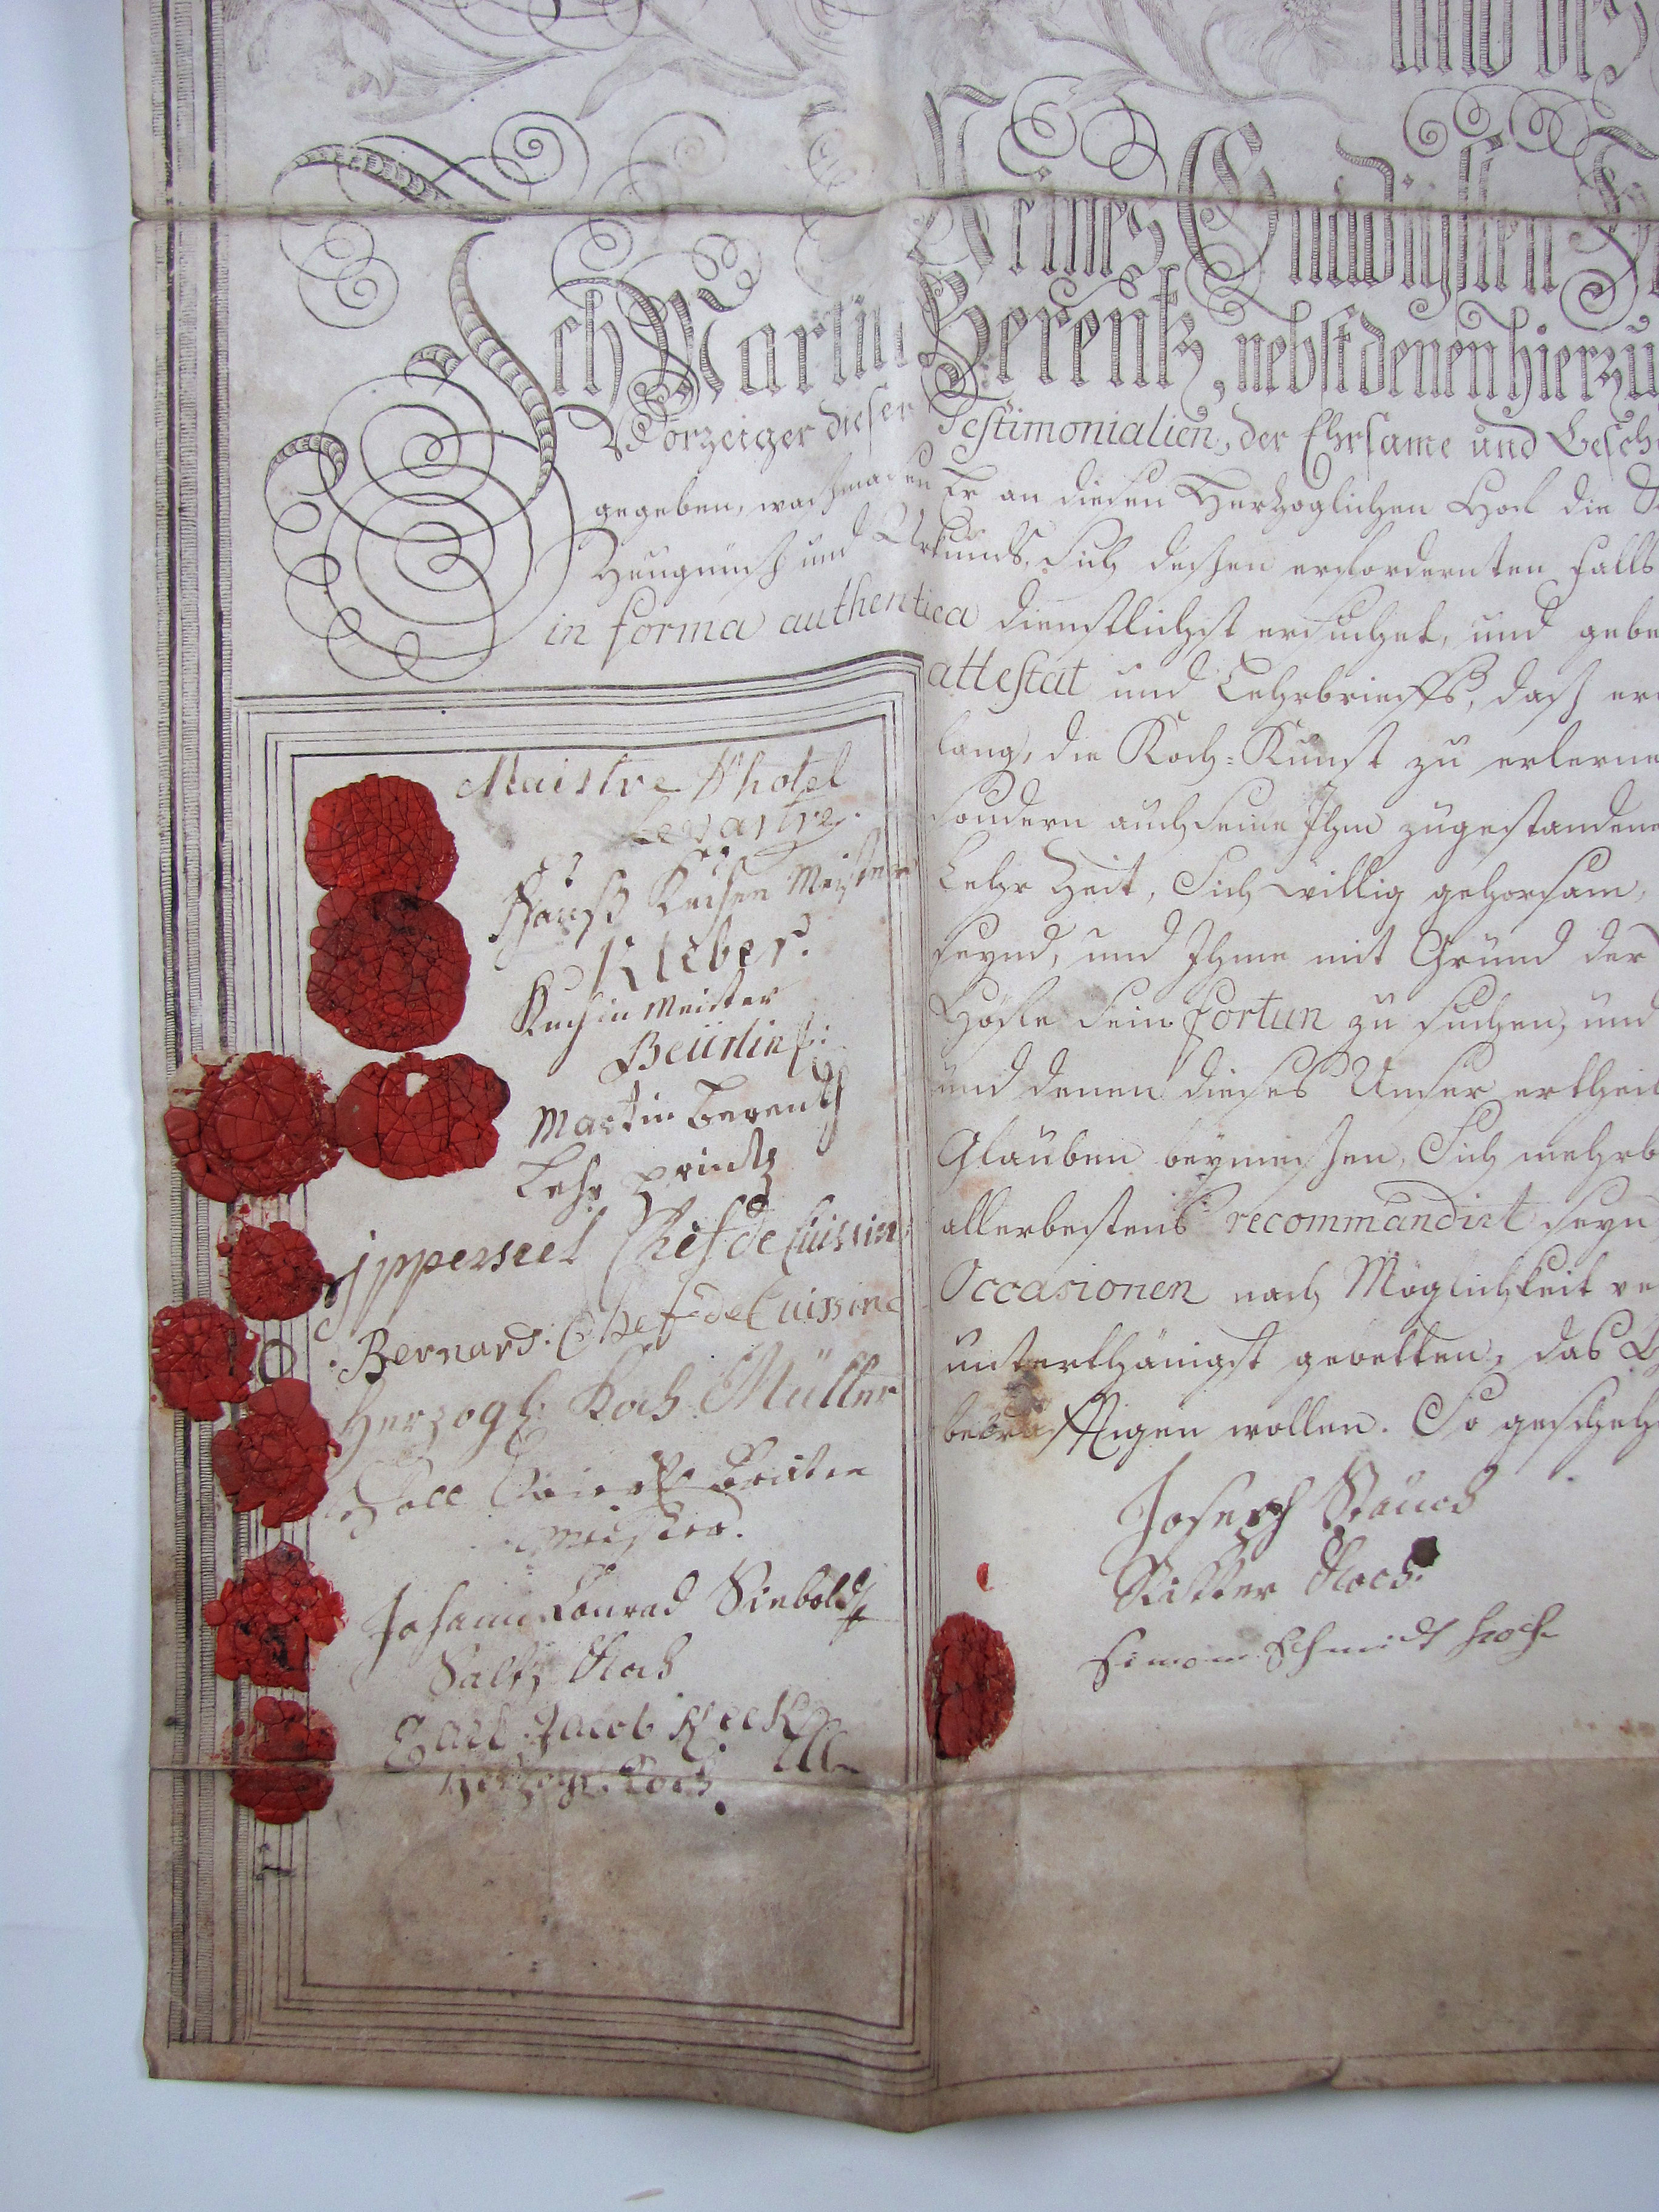 und des
Meines Gnädigsten
Ich Martin Berentz, nebst denen hierzu
Vorzeiger dieser Testimonialien, der Ehrsame und Besche
gegeben, wasmasen Er an diesen Herzoglichen Hof die
Zeugnuss und Urkunds, Sich dessen erforderten Falls
in forma authentica dienstlichst ersuchet, und gebe
attestat und Lehrbrieffs, dass er
lang, die Koch-Kunst zu erlerne
sondern auch seine Ihm zugestandene
Lehr Zeit, Sich willig gehorsam,
seynd, und Ihme mit Grund der
Höfle sein fortun zu suchen, und
und denen dieses Unser ertheil
Glauben beymessen, Sich mehrb
allerbestens recommandirt seyn
Occasionen nach Möglichkeit ve
unterthänigst gebetten, das
bekräfftigen wollen. So gescheh
Maistre d'hotel
Hauss Kuchen Meister
Kleber.
Kuchin Meister
Beürlin
Martin Berentz
Lehr printz
Ipperseel Chef de Cuissin
Bernard. Chef de Cuissine
Herzogl. Koch Müller
Meister.
Johann Conrad Siebold
Saltz Koch
Carl Jacob Keck
Herzogl. Koch.
Joseph Rauch
Ritter Koch.
Simon Schmidt Koch